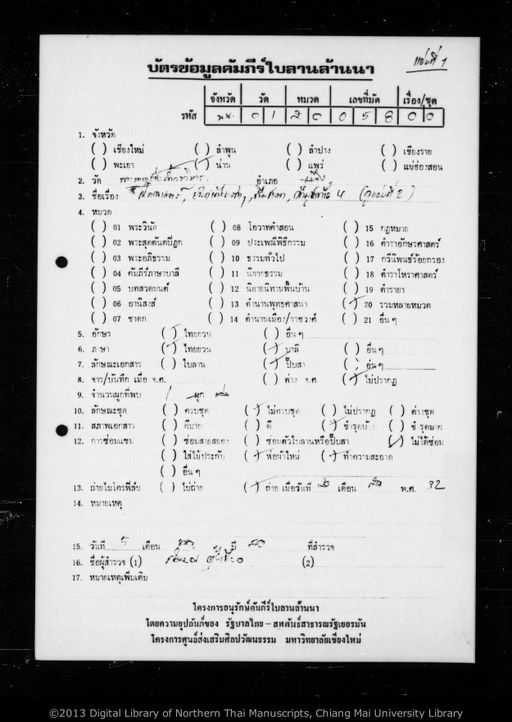 แผ่นที่ 1
บัตรข้อมูลคัมภีร์ใบลานล้านนา
จังหวัด วัด หมวด เลขที่มัด เรื่อง/ชุด
รหัส นน. 0 1 2 0 0 5 8 0 0
1. จังหวัด
( ) เชียงใหม่ ( ) ลำพูน ( ) ลำปาง ( ) เชียงราย
( ) พะเยา (/) น่าน ( ) แพร่ ( ) แม่ฮ่องสอน
2. วัด อำเภอ เมือง
3. ชื่อเรื่อง
4. หมวด
( ) 01 พระวินัย ( ) 08 โอวาทคำสอน ( ) 15 กฎหมาย
( ) 02 พระสุตตันตปิฎก ( ) 09 ประเพณีพิธีกรรม ( ) 16 ตำราอักษรศาสตร์
( ) 03 พระอภิธรรม ( ) 10 ธรรมทั่วไป ( ) 17 กวีนิพนธ์ร้อยกรอง
( ) 04 คัมภีร์ภาษาบาลี ( ) 11 นิยายธรรม ( ) 18 ตำราโหราศาสตร์
( ) 05 บทสวดมนต์ ( ) 12 นิยายนิทานพื้นบ้าน ( ) 19 ตำรายา
( ) 06 อานิสงส์ ( ) 13 ตำนานพุทธศาสนา (/) 20 รวมหลายหมวด
( ) 07 ชาดก ( ) 14 ตำนานเมือง/ราชวงศ์ ( ) 21 อื่น ๆ
5. อักษร (/) ไทยยวน ( ) อื่น ๆ
6. ภาษา (/) ไทยยวน (/) บาลี ( ) อื่น ๆ
7. ลักษณะเอกสาร ( ) ใบลาน (/) ปั๊บสา ( ) อื่น ๆ
8. จาร/บันทึก เมื่อ จ.ศ. ( ) ต่าง จ.ศ. (/) ไม่ปรากฏ
9. จำนวนผูกที่พบ 1 ผูก
10. ลักษณะชุด ( ) ครบชุด (/) ไม่ครบชุด ( ) ไม่ปรากฏ ( ) ต่างชุด
11. สภาพเอกสาร ( ) ดีมาก ( ) ดี (/) ชำรุดบ้าง ( ) ชำรุดมาก
12. การซ่อมแซม ( ) ซ่อมสายสยอง ( ) ซ่อมตัวใบลานหรือปั๊บสา (/) ไม่ได้ซ่อม
( ) ใส่ไม้ประกับ (/) ห่อผ้าใหม่ (/) ทำความสะอาด
( ) อื่น ๆ
13. ถ่ายไมโครฟิล์ม ( ) ไม่ถ่าย (/) ถ่าย เมื่อวันที่ เดือน พ.ศ. 32
14. หมายเหตุ
15. วันที่ 5 เดือน ปี ที่สำรวจ
16. ชื่อผู้สำรวจ (1) (2)
17. หมายเหตุเพิ่มเติม
โครงการอนุรักษ์คัมภีร์ใบลานล้านนา
โดยความอุปถัมภ์ของ รัฐบาลไทย - สหพันธ์สาธารณรัฐเยอรมัน
โครงการศูนย์ส่งเสริมศิลปวัฒนธรรม มหาวิทยาลัยเชียงใหม่
©2013 Digital Library of Northern Thai Manuscripts, Chiang Mai University Library